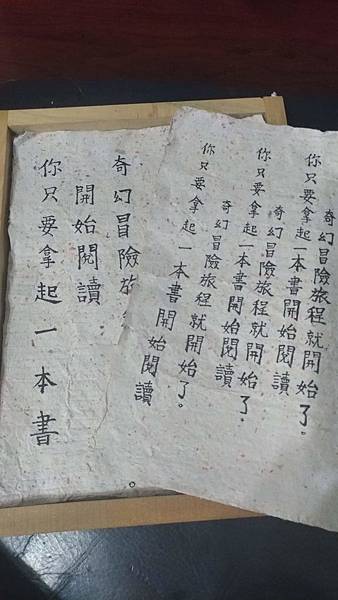 你只要拿起一本書
開始閱讀
奇幻冒險旅
你只要拿起一本書開始閱讀
奇幻冒險旅程就開始了。
你只要拿起一本書開始閱讀
奇幻冒險旅程就開始了。
你只要拿起一本書開始閱讀
奇幻冒險旅程就開始了。